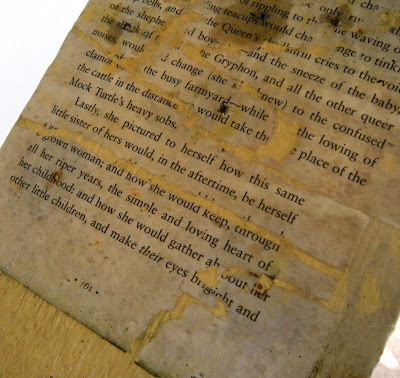 rippling to the waving of
teacups would cha ge to tink
p bells, and Queen's cries to the voi
of the shephe d boy and the sneeze of the baby
the shriek of Gryphon, and all the other queer
noises, woul change (she k new) to the confused
clamo the busy farmyard—while the lowing of
the cattle in the distance would take th e place of the
Mock Turtle's heavy sobs.
Lastly, she pictured to herself how this same
little sister of hers would, in the aftertime, be herself
a grown woman; and how she would keep, through
all her riper years, the simple and loving heart of
her childhood: and how she would gather ab bout her
other little children, and make their eyes brig ight and
· 101 ·